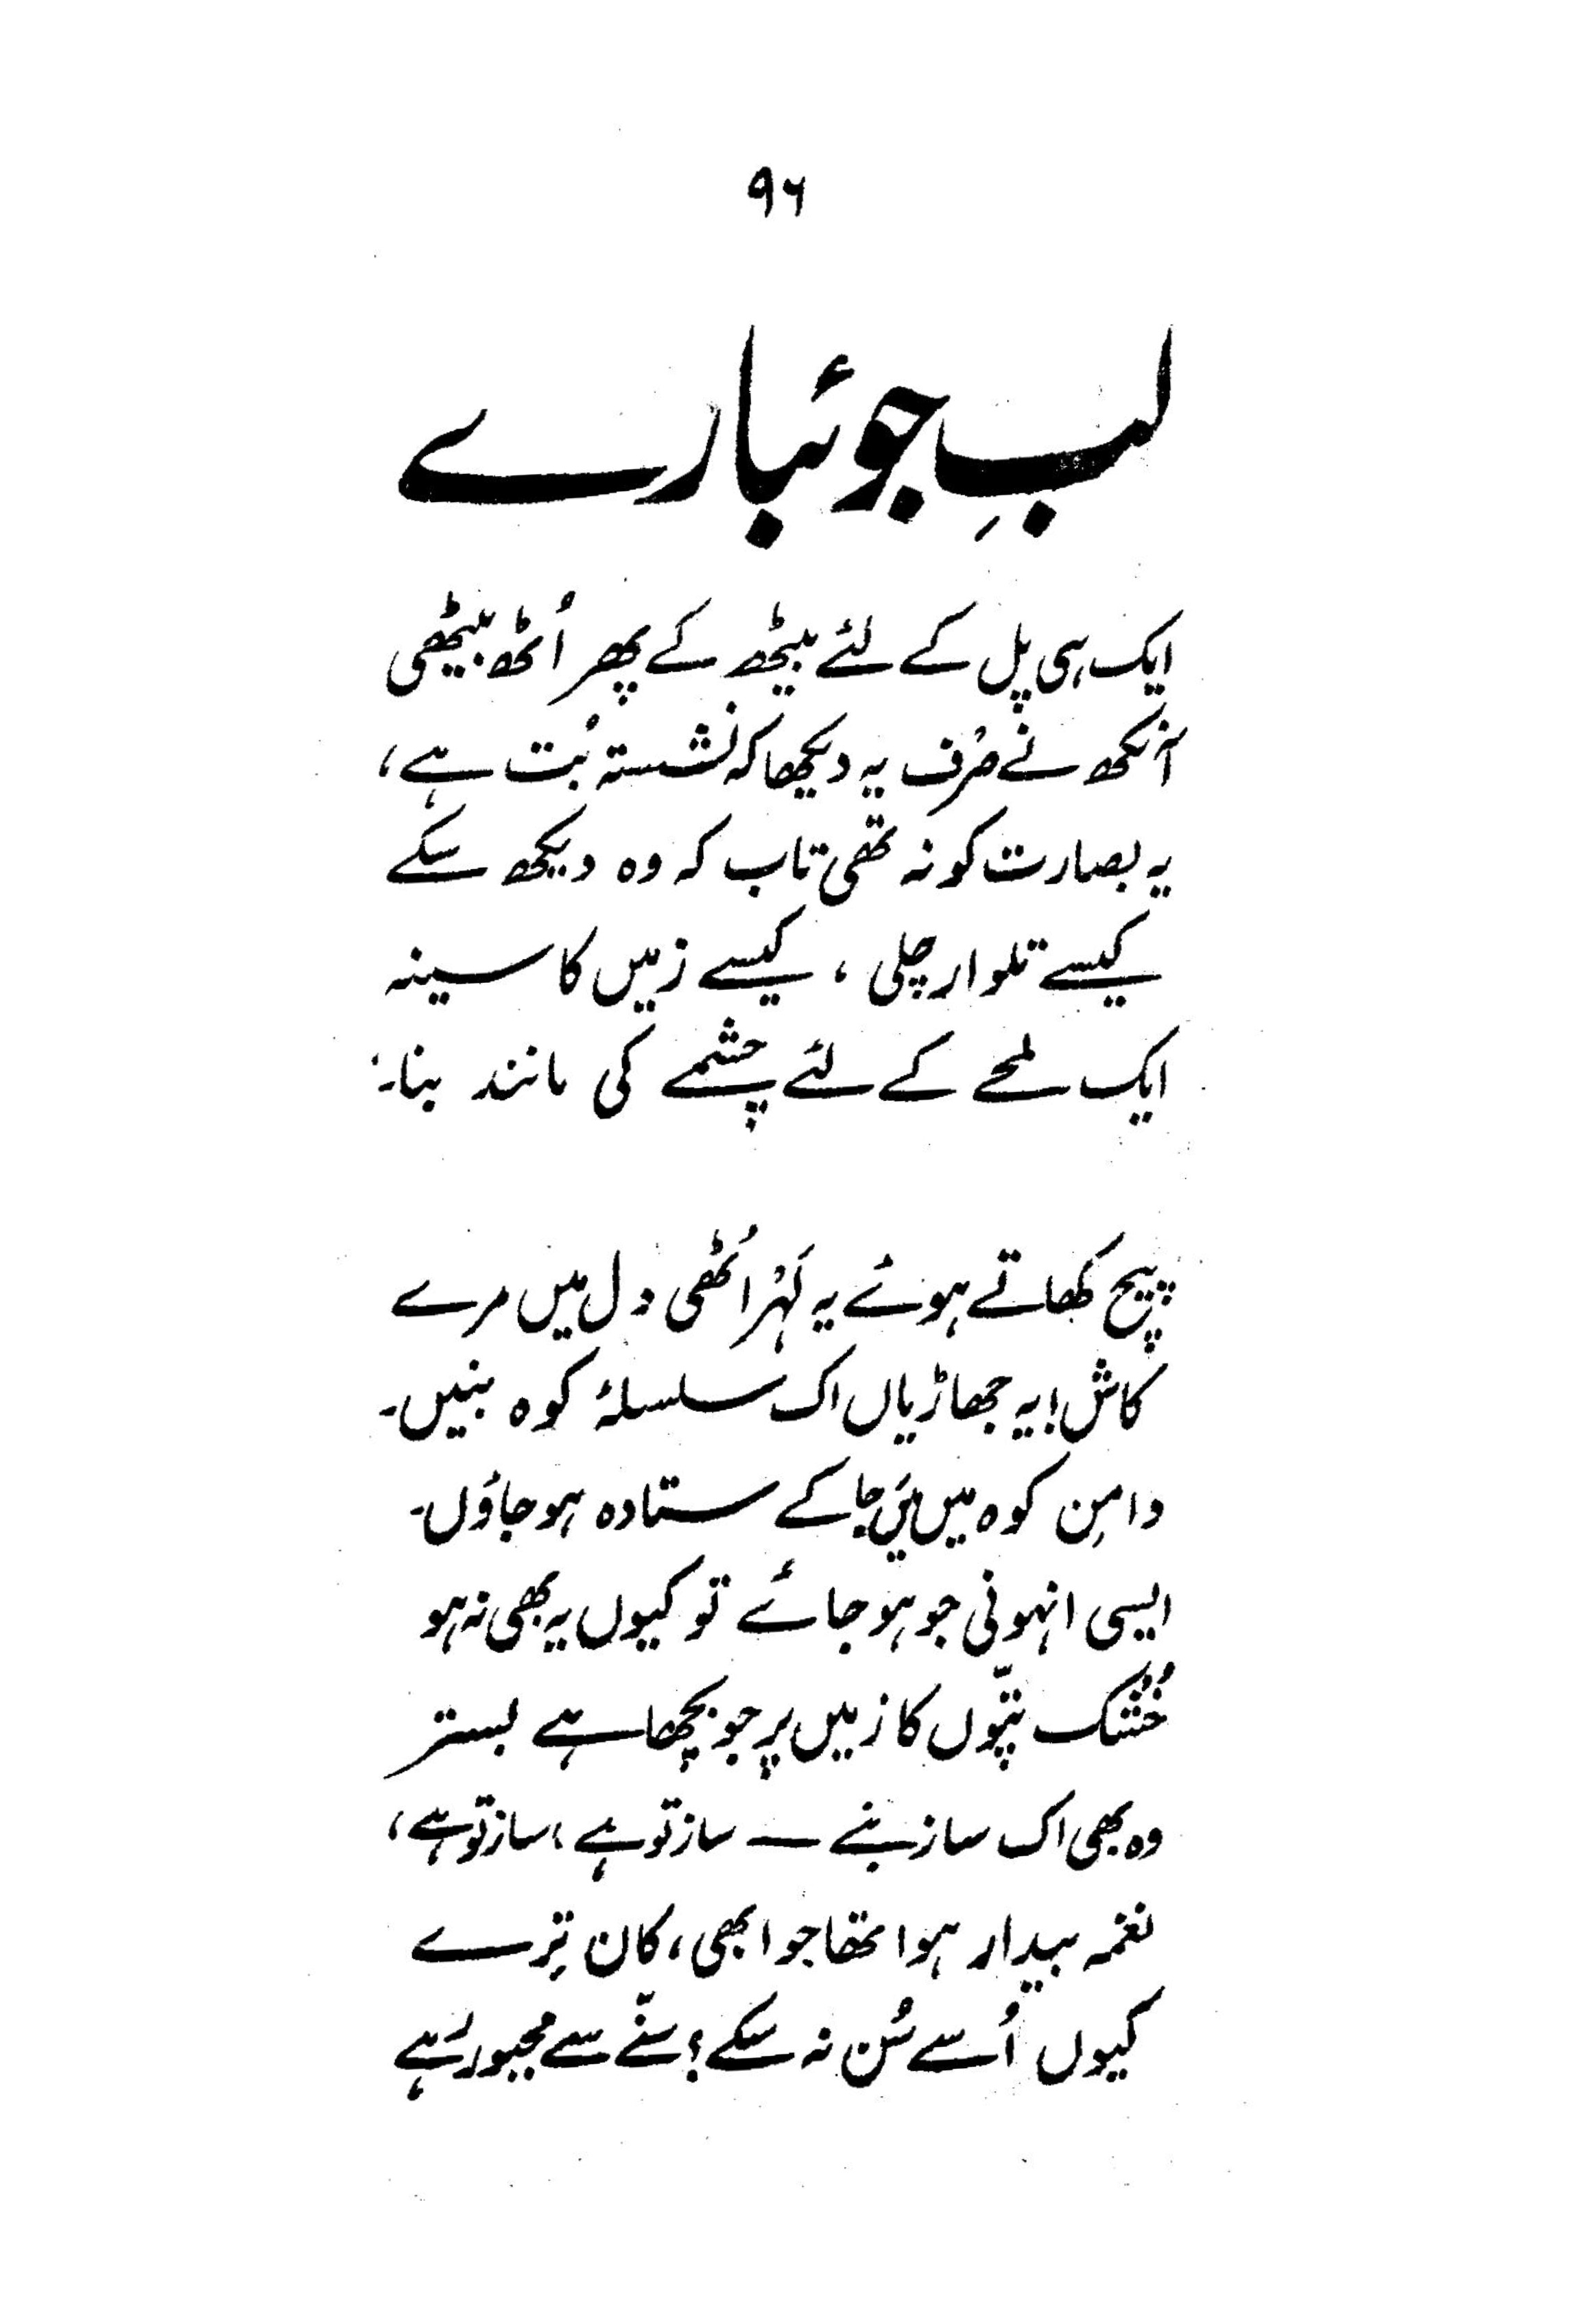 ۹۶
لبِ جوئبارے
ایک ہی پل کے لئے بیٹھ کے پھر اُٹھ بیٹھی
آنکھ نے صرْف یہ دیکھا کہ نشستہ بُت ہے،
یہ بصارت کو نہ تھی تاب کہ وہ دیکھ سکے
کیسے تلوار چلی ، کیسے زمیں کا سینہ
ایک لمحے کے لئے چشمے کی مانند بنا۔
پیچ کھاتے ہوئے یہ لَہْر اُٹھی دل میں مرے
کاش! یہ جھاڑیاں اک سلسلۂ کوہ بنیں۔
دامنِ کوہ میں مَیں جا کے ستادہ ہو جاؤں۔
ایسی انہونی جو ہو جائے تو کیوں یہ بھی نہ ہو
خُشْک پتّوں کا زمیں پر جو بچھا ہے بستر
وہ بھی اک ساز بنے — ساز تو ہے ، ساز تو ہے،
نغمہ بیدار ہوا تھا جو ابھی، کان تِرے
کیوں اُسے سُن نہ سکے؟ سننے سے مجبور رہے